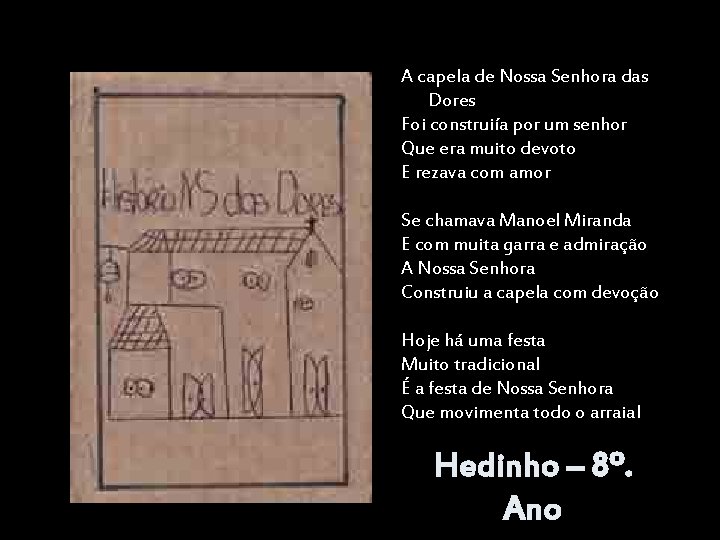 História NS das Dores
A capela de Nossa Senhora das
Dores
Foi construiía por um senhor
Que era muito devoto
E rezava com amor
Se chamava Manoel Miranda
E com muita garra e admiração
A Nossa Senhora
Construiu a capela com devoção
Hoje há uma festa
Muito tradicional
É a festa de Nossa Senhora
Que movimenta todo o arraial
Hedinho – 8º.
Ano